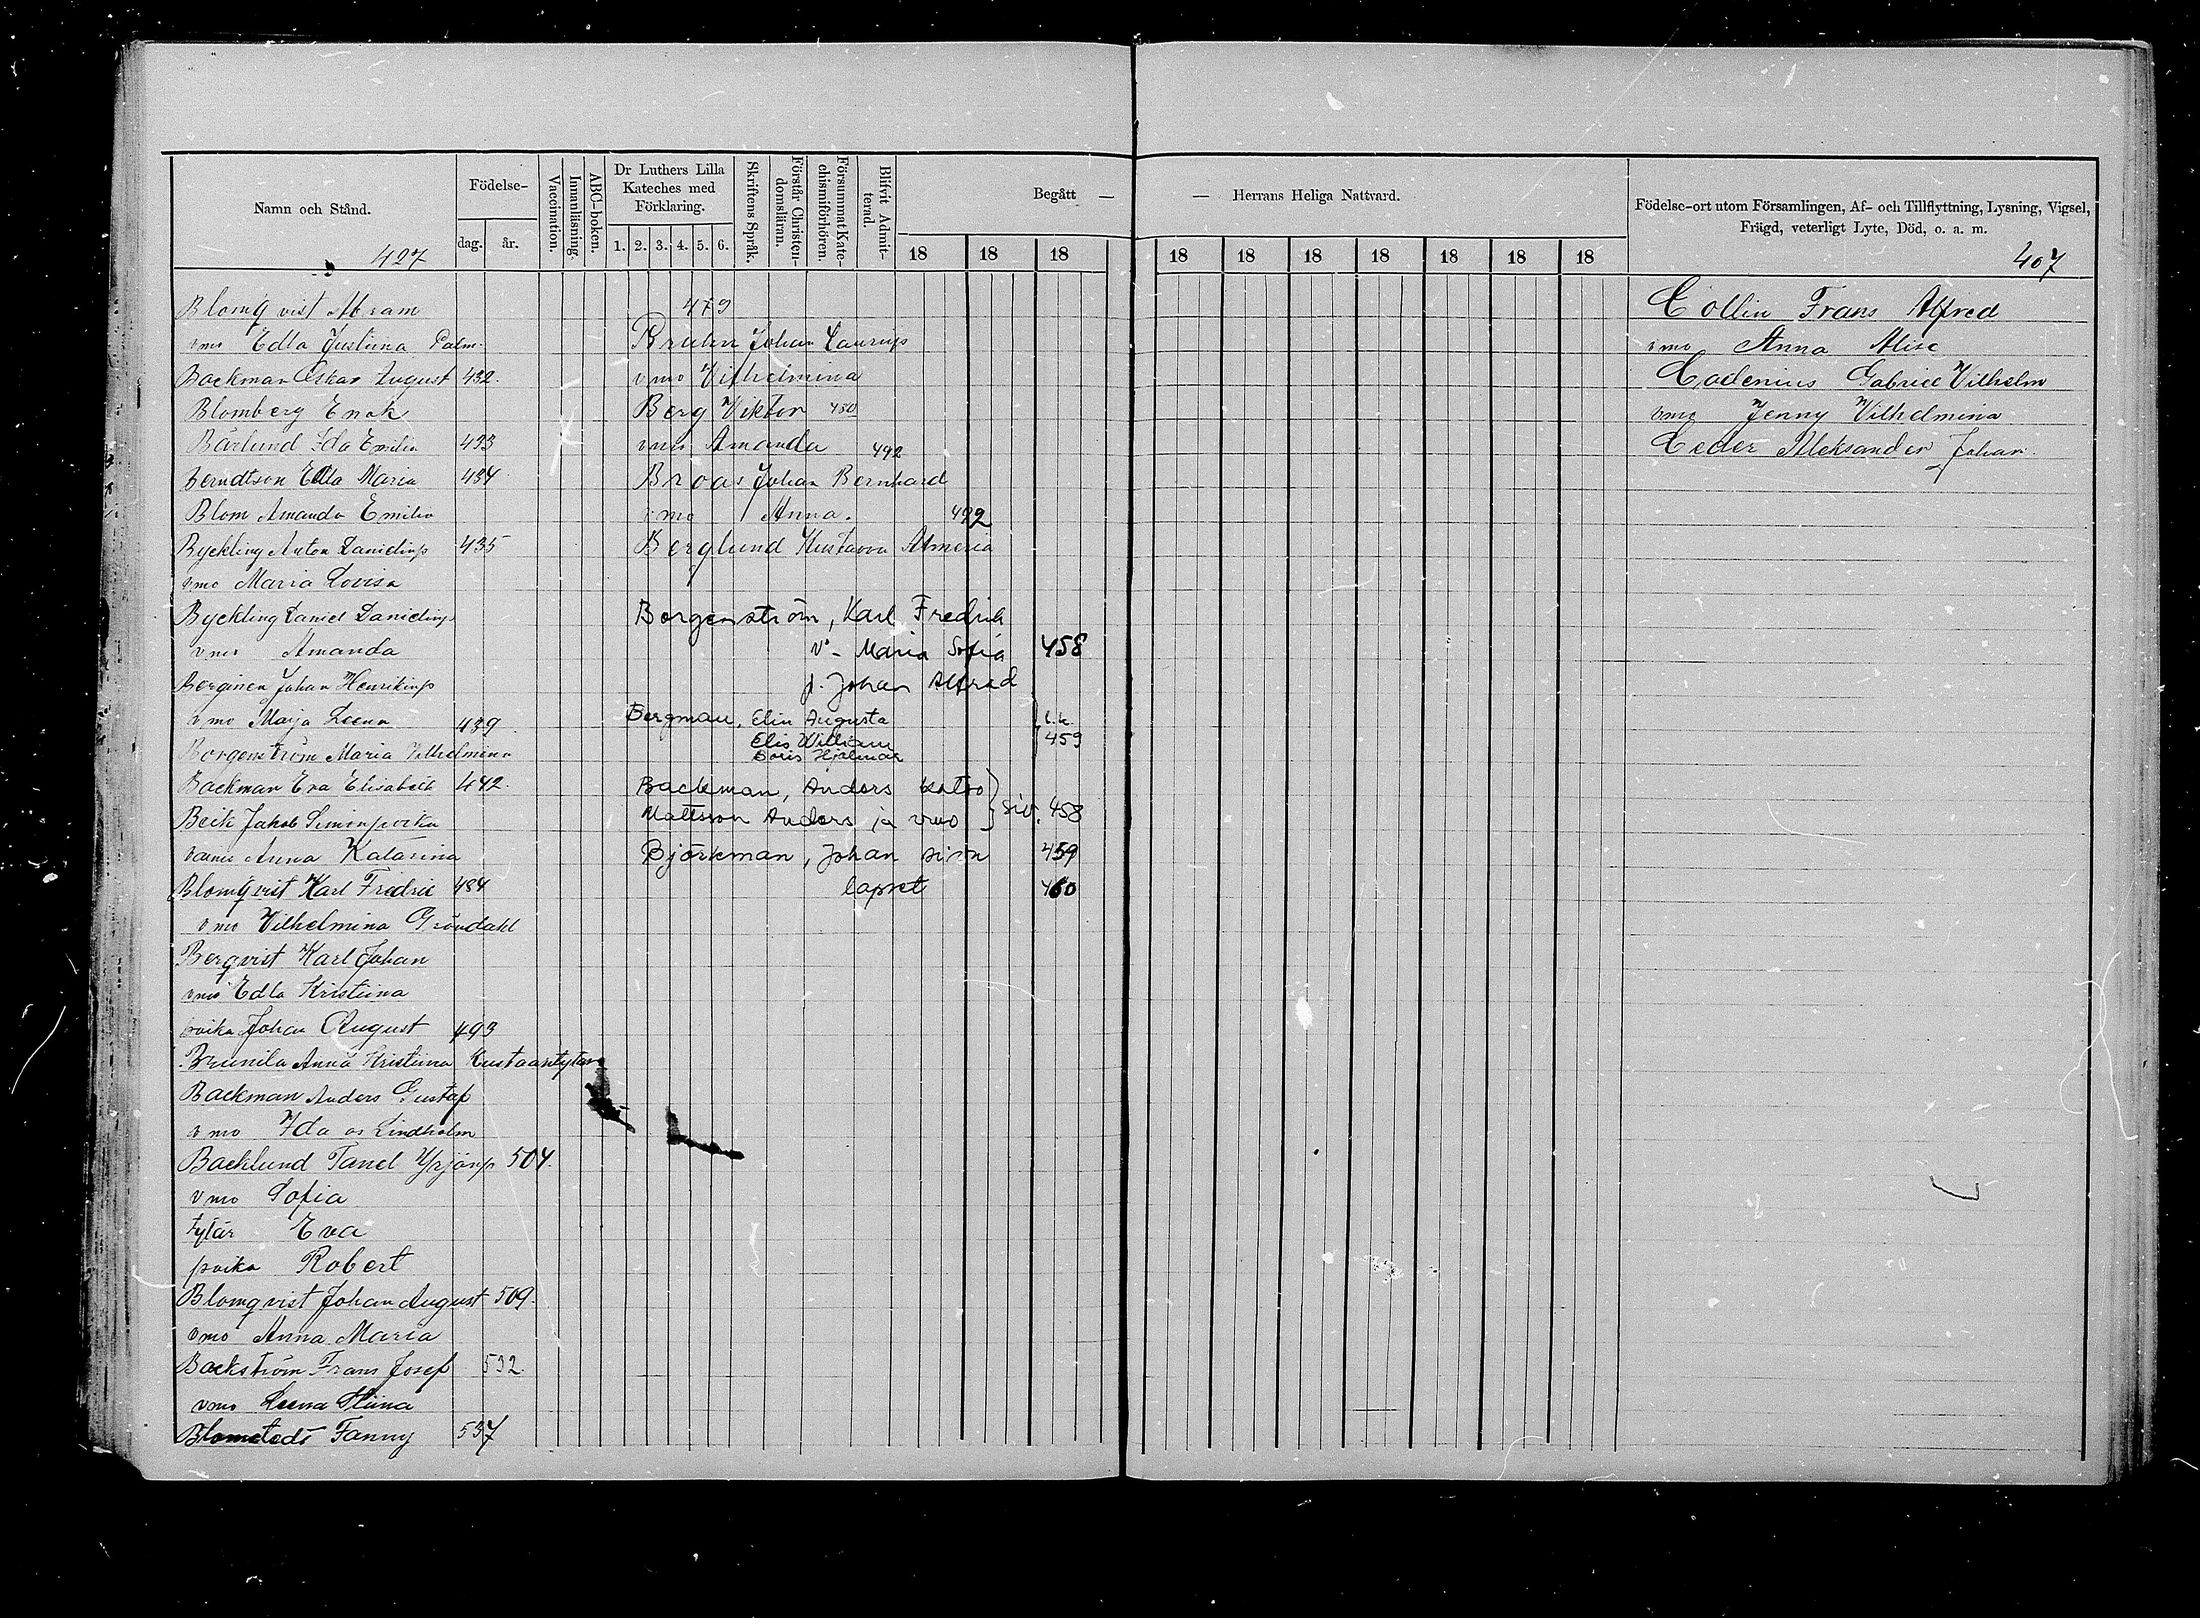 Namn och Stånd.
427
Födelse-
dag. år.
Vaccination.
Innanläsning.
ABC-boken.
Dr Luthers Lilla
Kateches med
Förklaring.
1. 2. 3. 4. 5. 6.
Skriftens Språk.
Förstår Christen-
domsläran.
Försummat Kate-
chismiförhören.
Blifvit Admit-
terad.
Begått —
18 18 18
— Herrans Heliga Nattvard.
18 18 18 18 18 18 18
Födelse-ort utom Församlingen, Af- och Tillflyttning, Lysning, Vigsel,
Frägd, veterligt Lyte, Död, o. a. m.
407
Blomqvist Abram
vmo Edla Justiina Palm.
Backman Oskar August 432.
Blomberg Enok
Bärlund Ida Emilia 433
Berndtson Edla Maria 434
Blom Amanda Emilia
Byckling Anton Danielinp 435
vmo Maria Lovisa
Byckling Daniel Danielinp
vmo Amanda
Berginen Johan Henrikinp
vmo Maija Leena 439
Borgenström Maria Vilhelmina
Backman Eva Elisabeth 442.
Beik Jakob Simonpoika
vaimo Anna Katarina
Blomqvist Karl Fredric 484
vmo Vilhelmina Gröndahl
Berqvist Karl Johan
vmo Edla Kristiina
poika Johan August 493
Brunila Anna Kristiina Kustaantytär
Backman Anders Gustaf
vmo Ida os Lindholm
Backlund Tanel Yrjönp 504.
vmo Sofia
tytär Eva
poika Robert
Blomqvist Johan August 509.
vmo Anna Maria
Backström Frans Josef 532.
vmo Leena Stiina
Blomstedt Fanny 537
479
Bruhn Johan Laurinp
vmo Vilhelmina
Berg Viktor 450
vmo Amanda 492
Broas Johan Bernhard
vmo Anna. 492
Berglund Kustaava Almeria
Borgenström, Karl Fredrik
v:- Maria Sofia 458
p. Johan Alfred
Bergman, Elin Augusta l.k.
Elis William 459
Boris Hjalmar
Backman, Anders katso
Mattsson Anders ja vmo } siv. 458
Björkman, Johan sivu 459
lapset 460
Collin Frans Alfred
vmo Anna Alise
Codenius Gabriel Vilhelm
vmo Jenny Vilhelmina
Ceder Aleksander Johan.